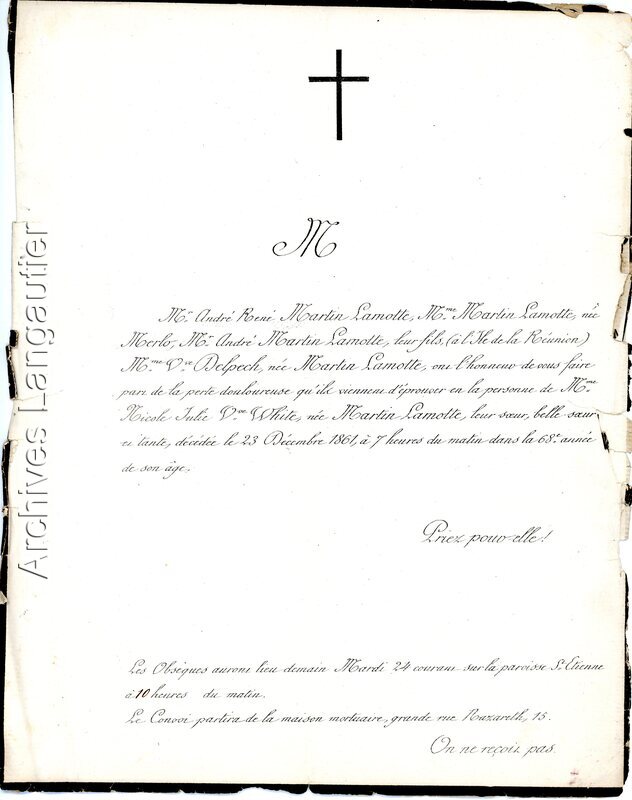 M
Mr. André René Martin Lamotte, Mme Martin Lamotte, née
Merlo, Mr. André Martin Lamotte, leur fils, (à l'Ile de la Réunion)
Mme Vve Delpech, née Martin Lamotte, ont l'honneur de vous faire
part de la perte douloureuse qu'ils viennent d'éprouver en la personne de Mme
Nicole Julie Vve White, née Martin Lamotte, leur sœur, belle sœur
et tante, décédée le 23 Décembre 1861, à 7 heures du matin dans la 68e. année
de son âge.
Priez pour elle!
Les Obsèques auront lieu demain Mardi 24 courant sur la paroisse St. Etienne
à 10 heures du matin.
Le Convoi partira de la maison mortuaire, grande rue Nazareth, 15.
On ne reçoit pas.
Archives Langautier